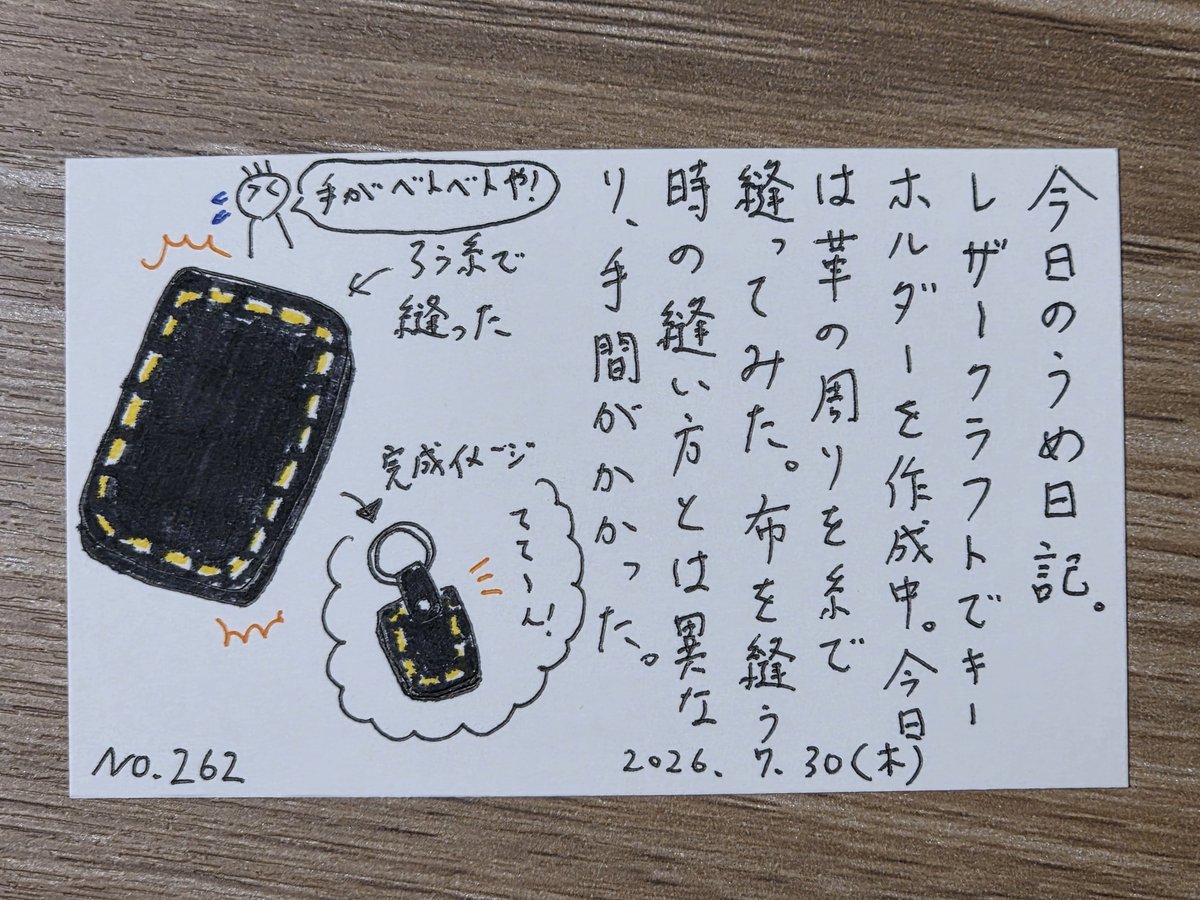 今日のうめ日記。
レザークラフトでキー
ホルダーを作成中。今日
は革の周りを糸で
縫ってみた。布を縫う
時の縫い方とは異な
り、手間がかかった。
手がベトベトや!
ろう糸で
縫った
完成イメージ
ててーん!
No.262
2026.7.30(木)